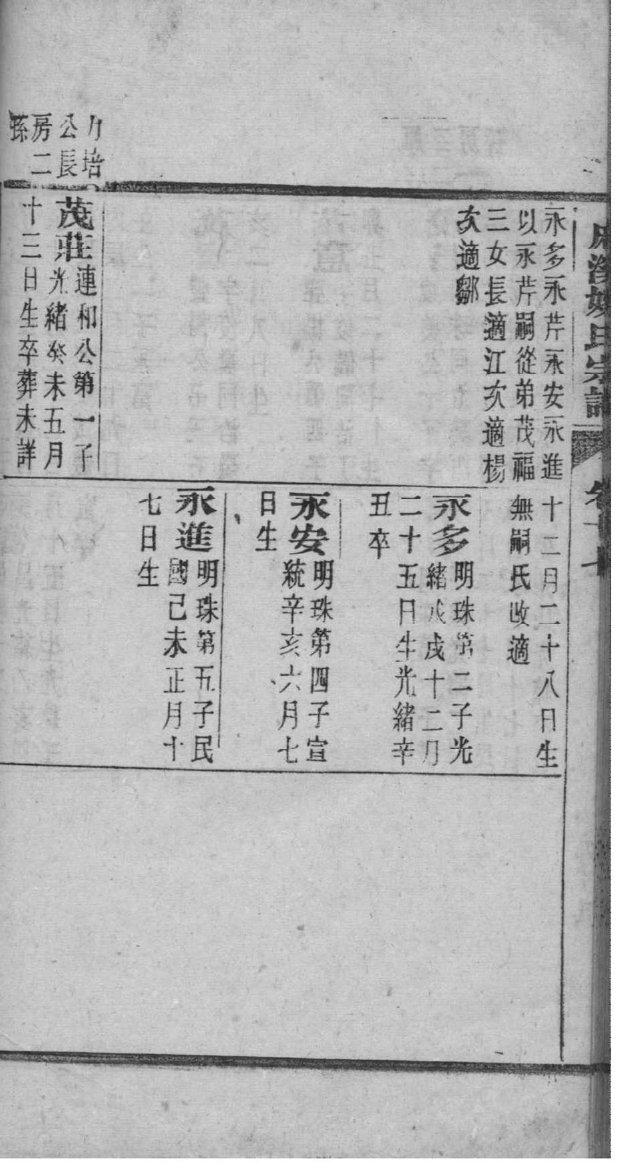 氏宗譜
卷十
永多永芹永安永進
以永芹嗣從弟茂福
三女長適江次適楊
次適鄒
十二月二十八日生
無嗣氏改適
永多
明珠第二子光
緒戊戌十二月
二十五日生光緒辛
丑卒
永安
明珠第四子宣
統辛亥六月七
日生
永進
明珠第五子民
國己未正月十
七日生
培
公長
房二
孫
茂莊
連和公第一子
光緒癸未五月
十三日生卒葬未詳